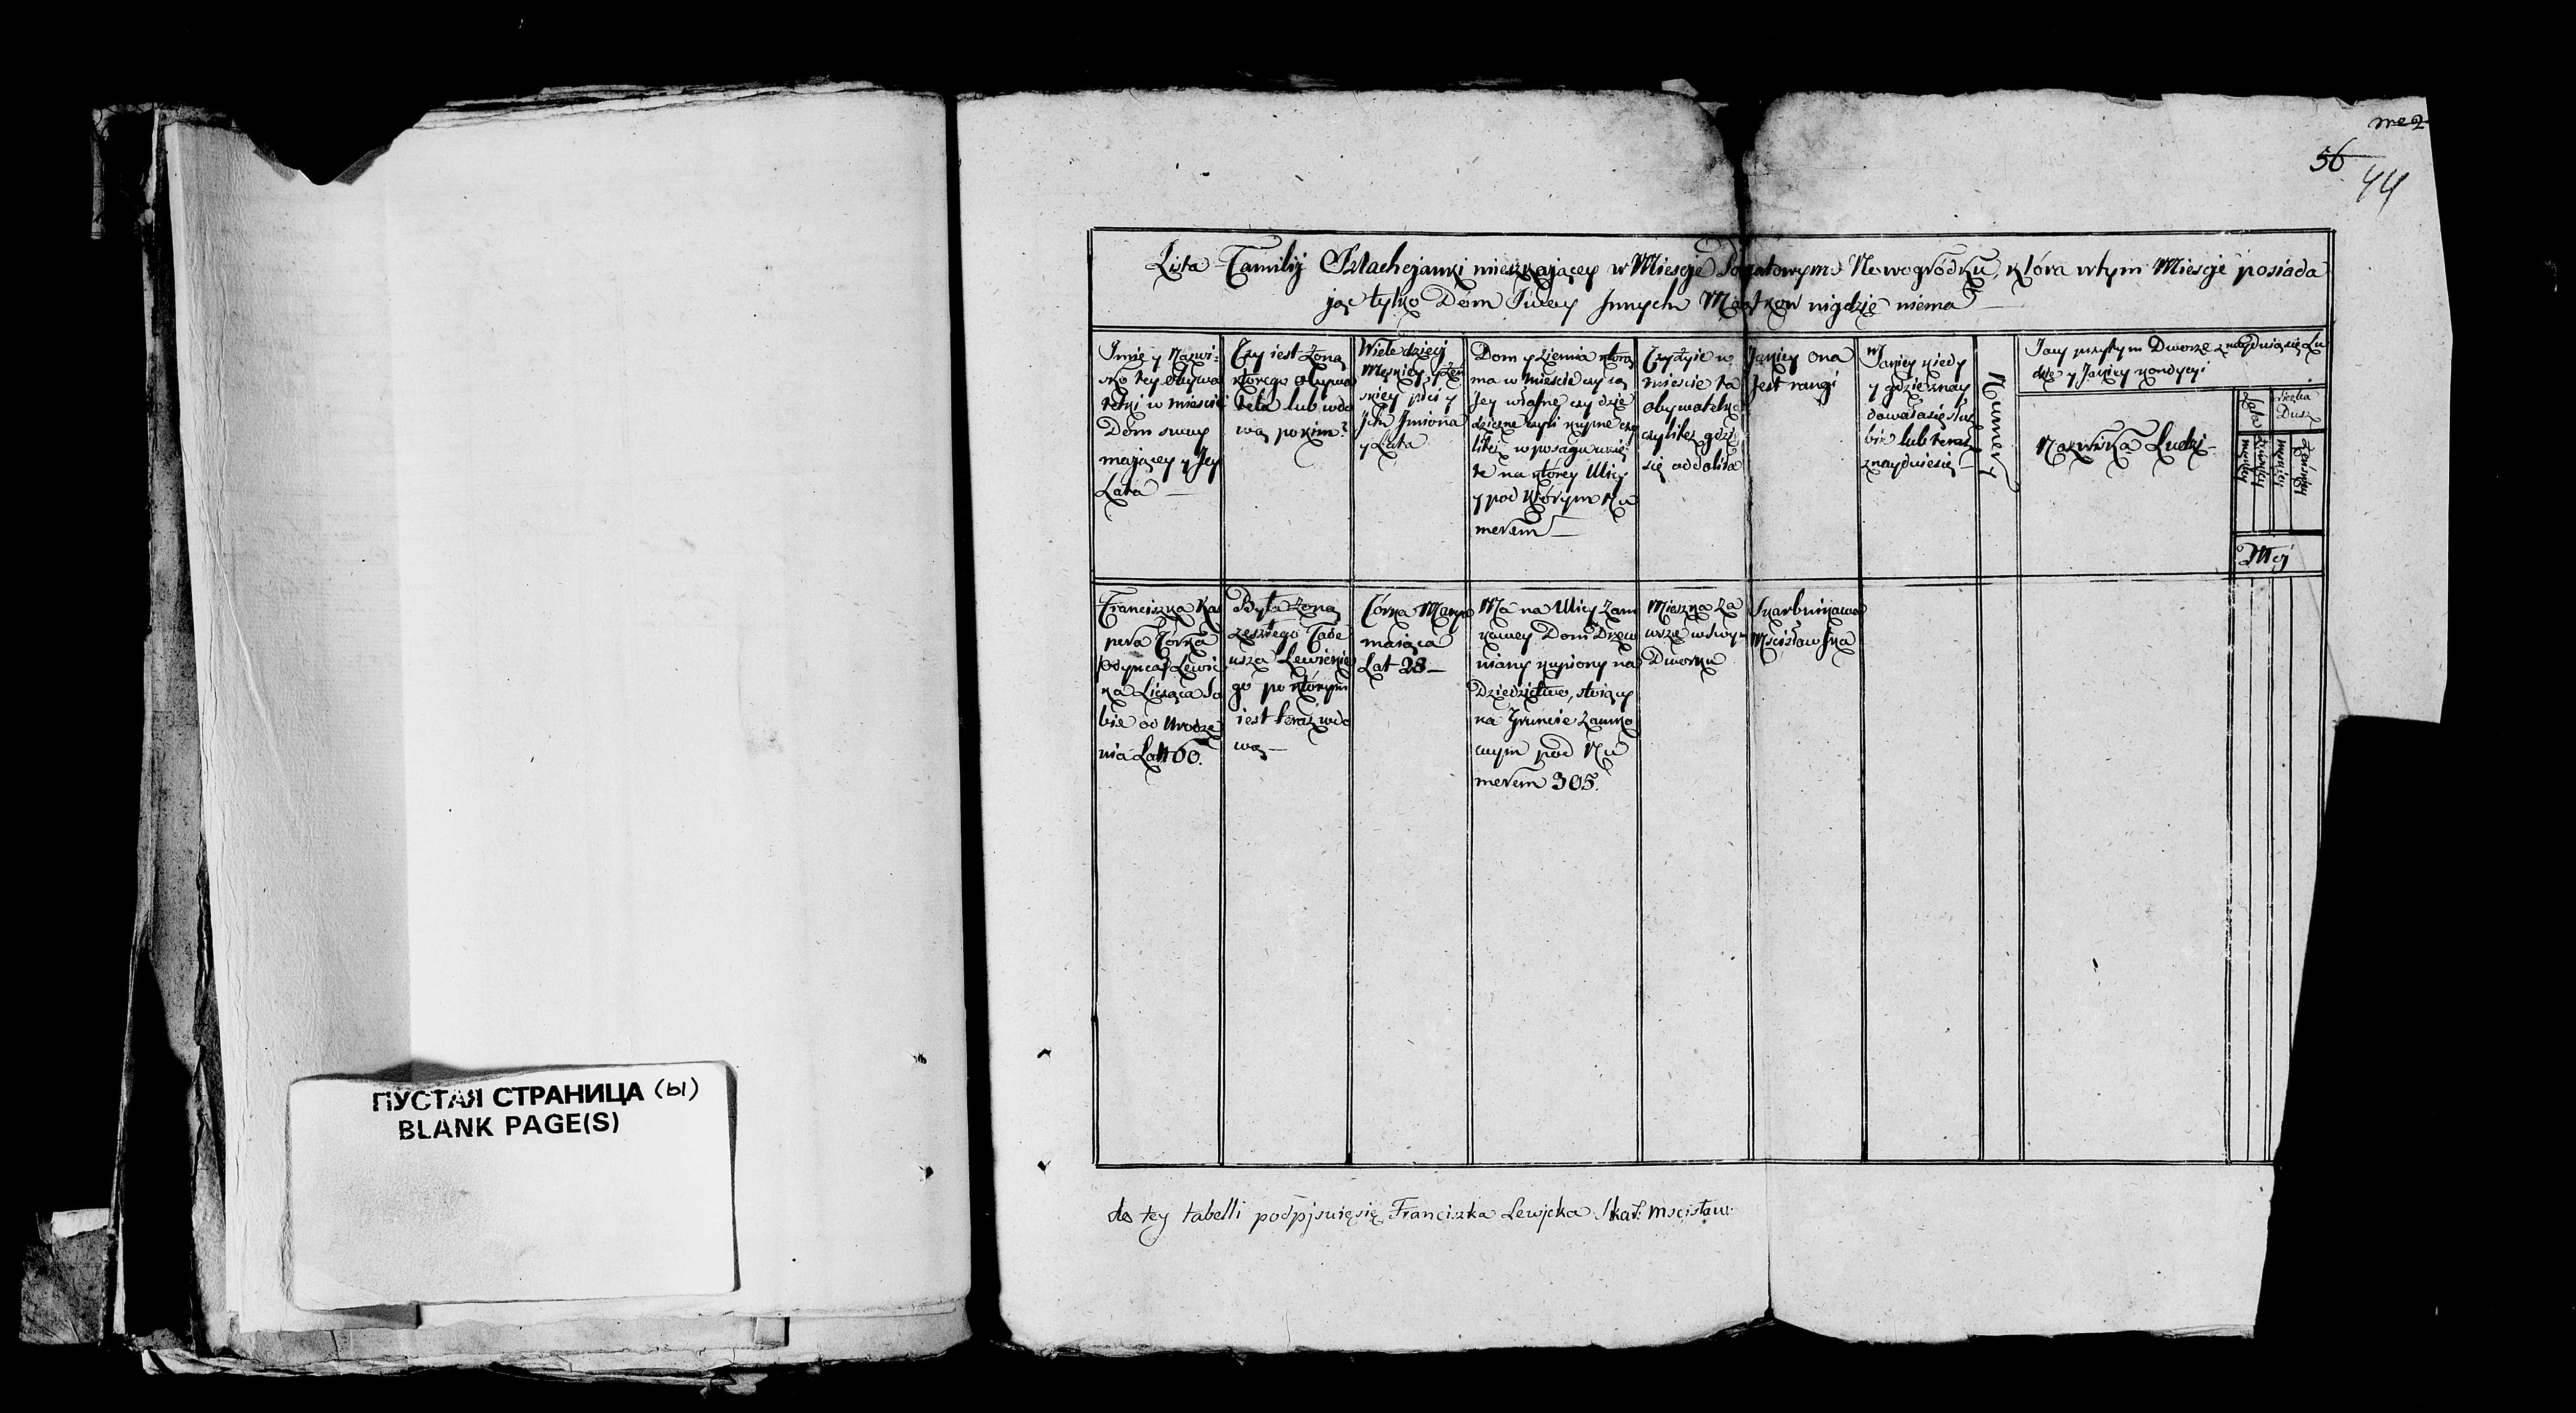 56
44
Lista Familij Szlachcjanki mieszkającey w Miescje Powiatowym Nowogródku, która wtym Miescje posiada
jąc tylko Dóm Swoy Jnnych Maiątkow nigdzie niema
Jmie y Nazwi-
sko tey obywa
telki w mieście
Dóm swoy
mającey y Jey
Lata
Czy iest żoną
którego obywa
tela lub wdo
wą po kim?
Wiele dzieci
Męskiey y żeń
skiey płci y
Jch Jmiona
y Lata
Dom y ziemia którą
ma w mieście czy są
Jey własne czy dzie
dziczne czyli kupne czy
liteż w posagu wzię
te na którey Ulicy
y pod którym Nu
merem
Czy żyie w
mieście ta
obywatelka
czyliteż gdzie
się oddaliła
Jakiey ona
Jest rangi
w Jakiey kiedy
y gdzie znay
dowała się służ
bie lub teraz
znayduie się
Numery
Jacy przy tym Dworze znayduią się Lu
dzie y Jakiey kondycyi
Nazwiska Ludzi
Lata
męskiey
żeńskiey
Liczba
Dusz
męskiey
żeńskiey
Franciszka Kas
pera Córka
Odyńca Lewic
ka Licząca So
bie od Urodze
nia Latt 60.
Była żoną
zeszłego Tade
usza Lewickie
go po którym
iest teraz wdo
wą
Córka Marya
maiąca
Lat 28
Ma na Ulicy Zam
kowey Dom Drew
niany kupiony na
Dziedzictwo, stoiący
na Gruncie zamko
wym pod Nu
merem 305.
Mieszka za
wsze w swym
Dworku
Skarbnikowa
Mścisławska
do tey tabelli podpjsuię się Franciszka Lewjcka Skar: mscisław:
ПУСТАЯ СТРАНИЦА (ы)
BLANK PAGE(S)